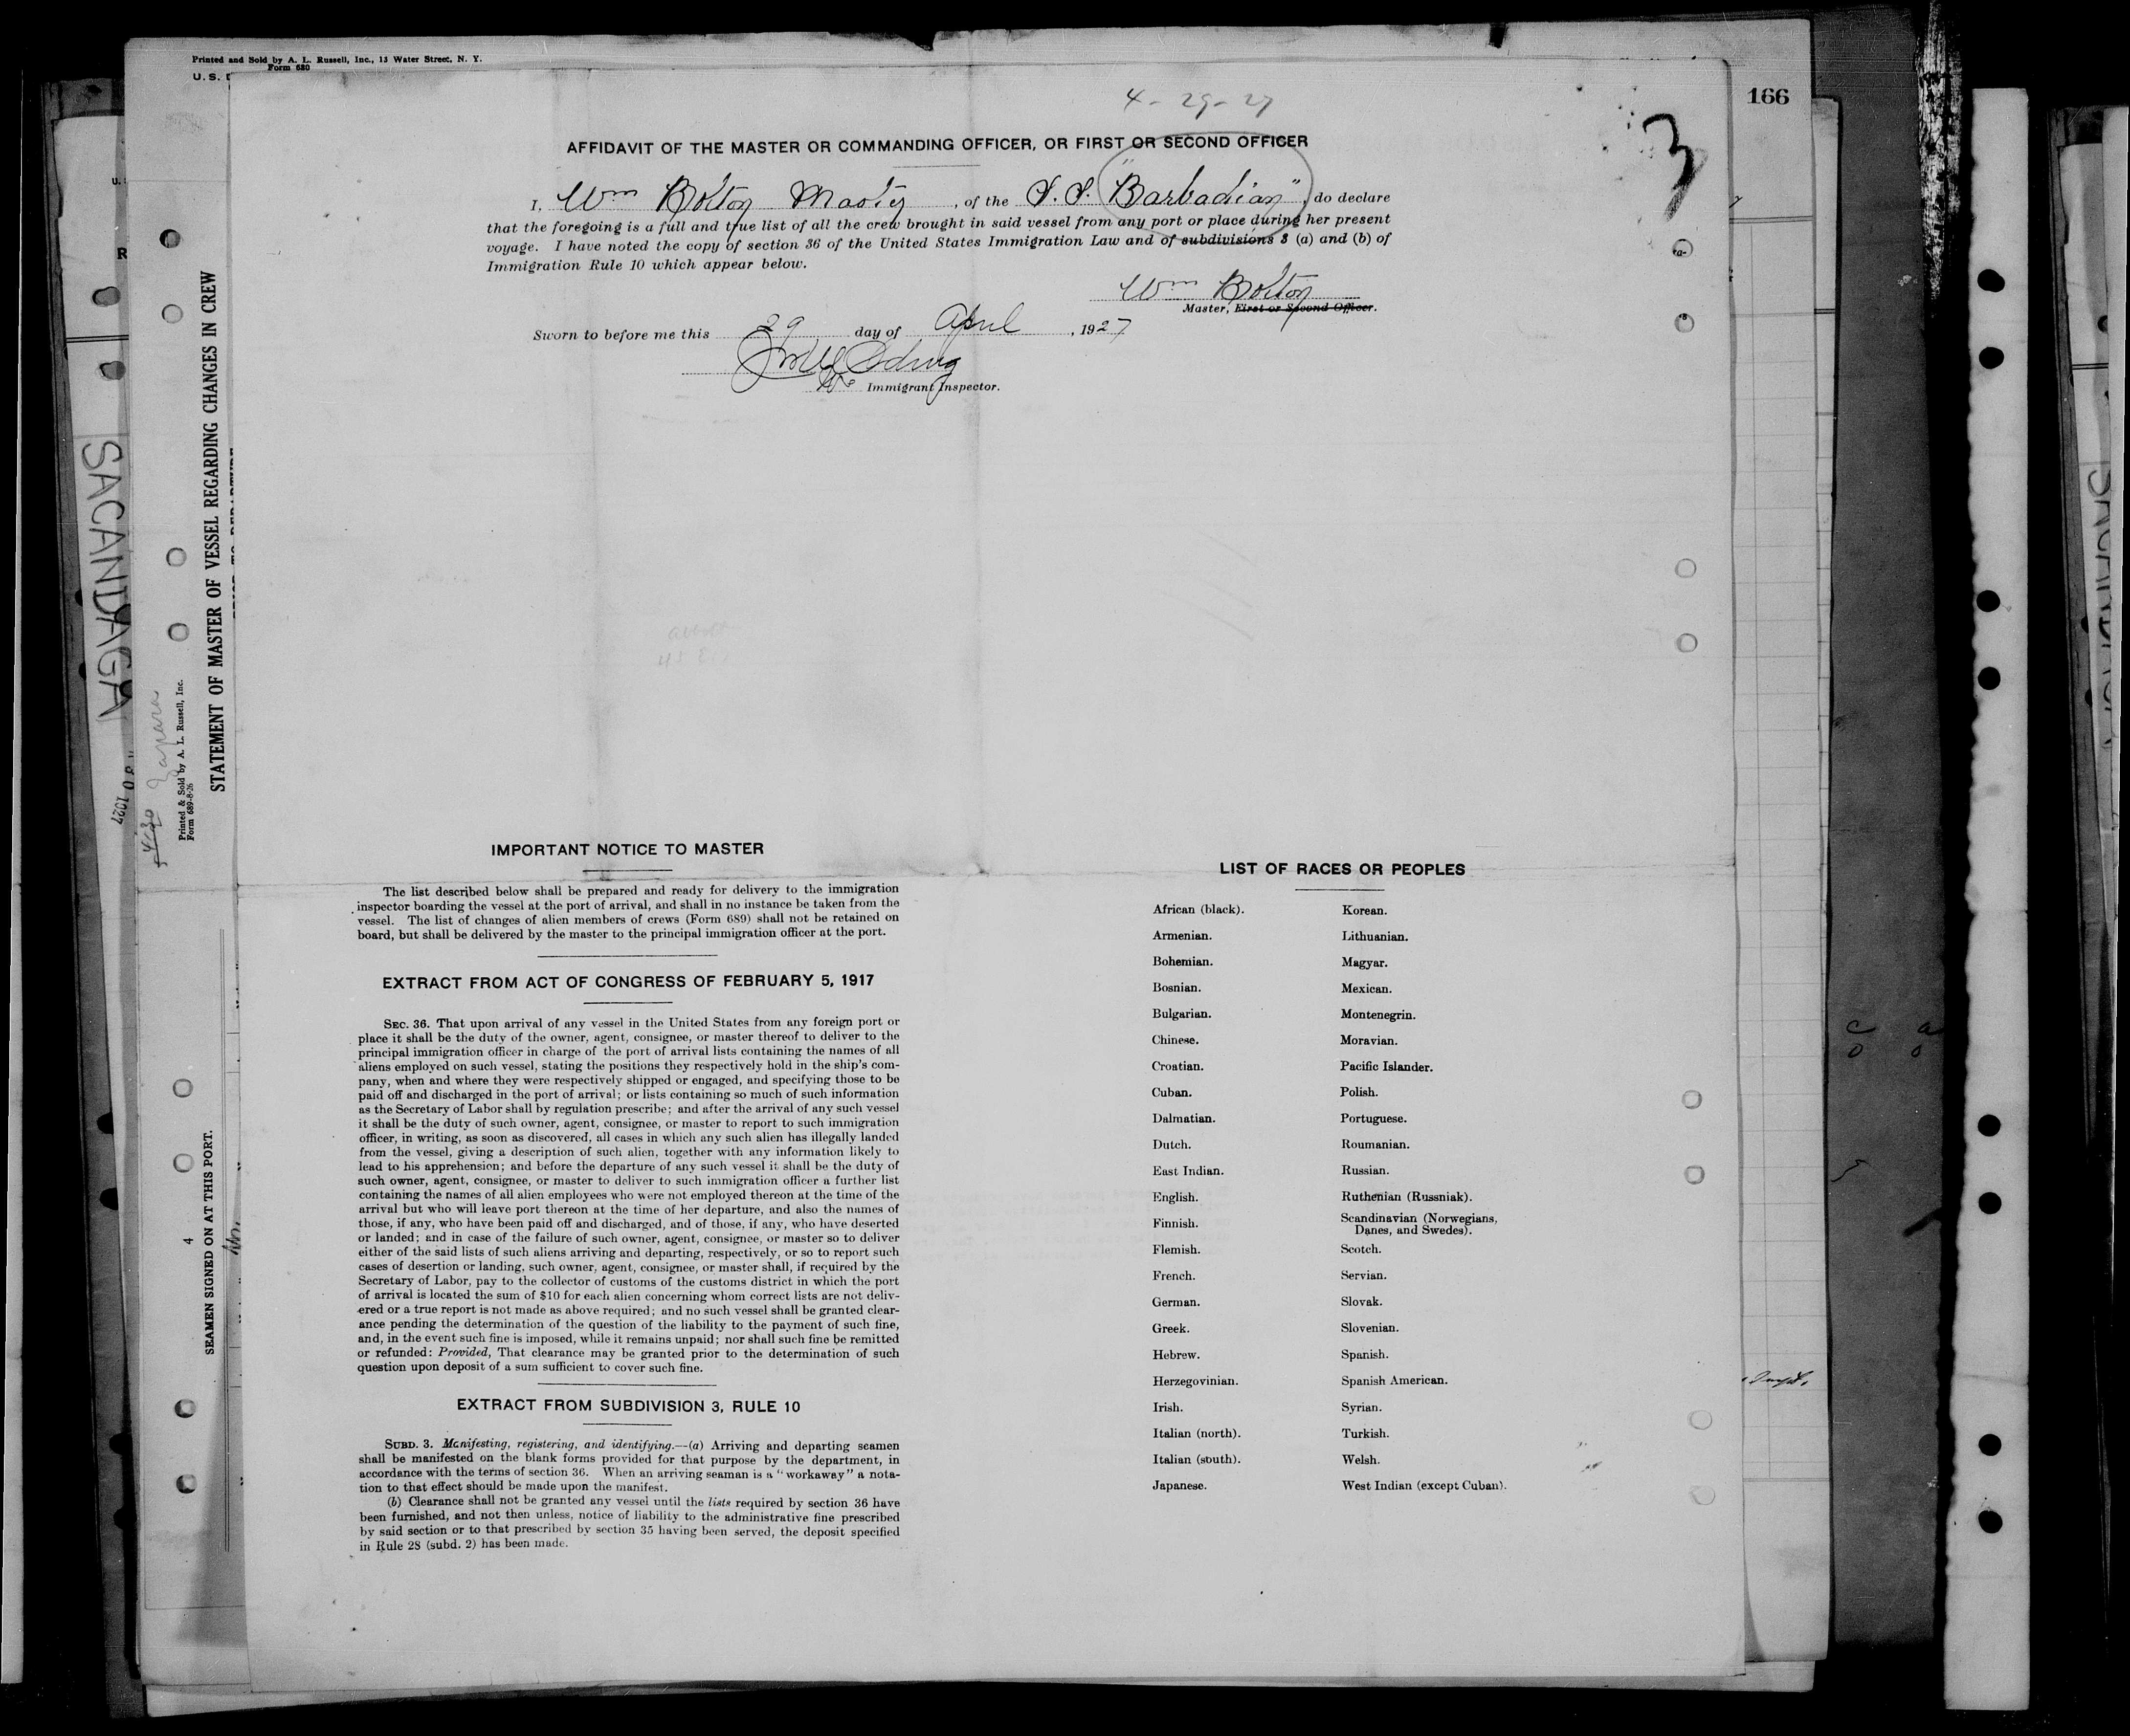 Printed and Sold by A. L. Russell, Inc., 13 Water Street, N. Y.
Form 680
U. S.
166
4 - 29 - 27
3
AFFIDAVIT OF THE MASTER OR COMMANDING OFFICER, OR FIRST OR SECOND OFFICER
I, Wm Bolton Master, of the S. S. "Barbadian", do declare
that the foregoing is a full and true list of all the crew brought in said vessel from any port or place during her present
voyage. I have noted the copy of section 36 of the United States Immigration Law and of subdivisions 3 (a) and (b) of
Immigration Rule 10 which appear below.
Wm Bolton
Master, First or Second Officer.
Sworn to before me this 29 day of April, 1927
Immigrant Inspector.
IMPORTANT NOTICE TO MASTER
The list described below shall be prepared and ready for delivery to the immigration
inspector boarding the vessel at the port of arrival, and shall in no instance be taken from the
vessel. The list of changes of alien members of crews (Form 689) shall not be retained on
board, but shall be delivered by the master to the principal immigration officer at the port.
EXTRACT FROM ACT OF CONGRESS OF FEBRUARY 5, 1917
SEC. 36. That upon arrival of any vessel in the United States from any foreign port or
place it shall be the duty of the owner, agent, consignee, or master thereof to deliver to the
principal immigration officer in charge of the port of arrival lists containing the names of all
aliens employed on such vessel, stating the positions they respectively hold in the ship's com-
pany, when and where they were respectively shipped or engaged, and specifying those to be
paid off and discharged in the port of arrival; or lists containing so much of such information
as the Secretary of Labor shall by regulation prescribe; and after the arrival of any such vessel
it shall be the duty of such owner, agent, consignee, or master to report to such immigration
officer, in writing, as soon as discovered, all cases in which any such alien has illegally landed
from the vessel, giving a description of such alien, together with any information likely to
lead to his apprehension; and before the departure of any such vessel it shall be the duty of
such owner, agent, consignee, or master to deliver to such immigration officer a further list
containing the names of all alien employees who were not employed thereon at the time of the
arrival but who will leave port thereon at the time of her departure, and also the names of
those, if any, who have been paid off and discharged, and of those, if any, who have deserted
or landed; and in case of the failure of such owner, agent, consignee, or master so to deliver
either of the said lists of such aliens arriving and departing, respectively, or so to report such
cases of desertion or landing, such owner, agent, consignee, or master shall, if required by the
Secretary of Labor, pay to the collector of customs of the customs district in which the port
of arrival is located the sum of $10 for each alien concerning whom correct lists are not deliv-
ered or a true report is not made as above required; and no such vessel shall be granted clear-
ance pending the determination of the question of the liability to the payment of such fine,
and, in the event such fine is imposed, while it remains unpaid; nor shall such fine be remitted
or refunded: Provided, That clearance may be granted prior to the determination of such
question upon deposit of a sum sufficient to cover such fine.
EXTRACT FROM SUBDIVISION 3, RULE 10
SUBD. 3. Manifesting, registering, and identifying.—(a) Arriving and departing seamen
shall be manifested on the blank forms provided for that purpose by the department, in
accordance with the terms of section 36. When an arriving seaman is a "workaway" a nota-
tion to that effect should be made upon the manifest.
(b) Clearance shall not be granted any vessel until the lists required by section 36 have
been furnished, and not then unless, notice of liability to the administrative fine prescribed
by said section or to that prescribed by section 35 having been served, the deposit specified
in Rule 28 (subd. 2) has been made.
LIST OF RACES OR PEOPLES
African (black).
Armenian.
Bohemian.
Bosnian.
Bulgarian.
Chinese.
Croatian.
Cuban.
Dalmatian.
Dutch.
East Indian.
English.
Finnish.
Flemish.
French.
German.
Greek.
Hebrew.
Herzegovinian.
Irish.
Italian (north).
Italian (south).
Japanese.
Korean.
Lithuanian.
Magyar.
Mexican.
Montenegrin.
Moravian.
Pacific Islander.
Polish.
Portuguese.
Roumanian.
Russian.
Ruthenian (Russniak).
Scandinavian (Norwegians,
Danes, and Swedes).
Scotch.
Servian.
Slovak.
Slovenian.
Spanish.
Spanish American.
Syrian.
Turkish.
Welsh.
West Indian (except Cuban).
STATEMENT OF MASTER OF VESSEL REGARDING CHANGES IN CREW
Printed & Sold by A. L. Russell, Inc.
Form 689-8-26
4
SEAMEN SIGNED ON AT THIS PORT.
SACANDAGA
1927